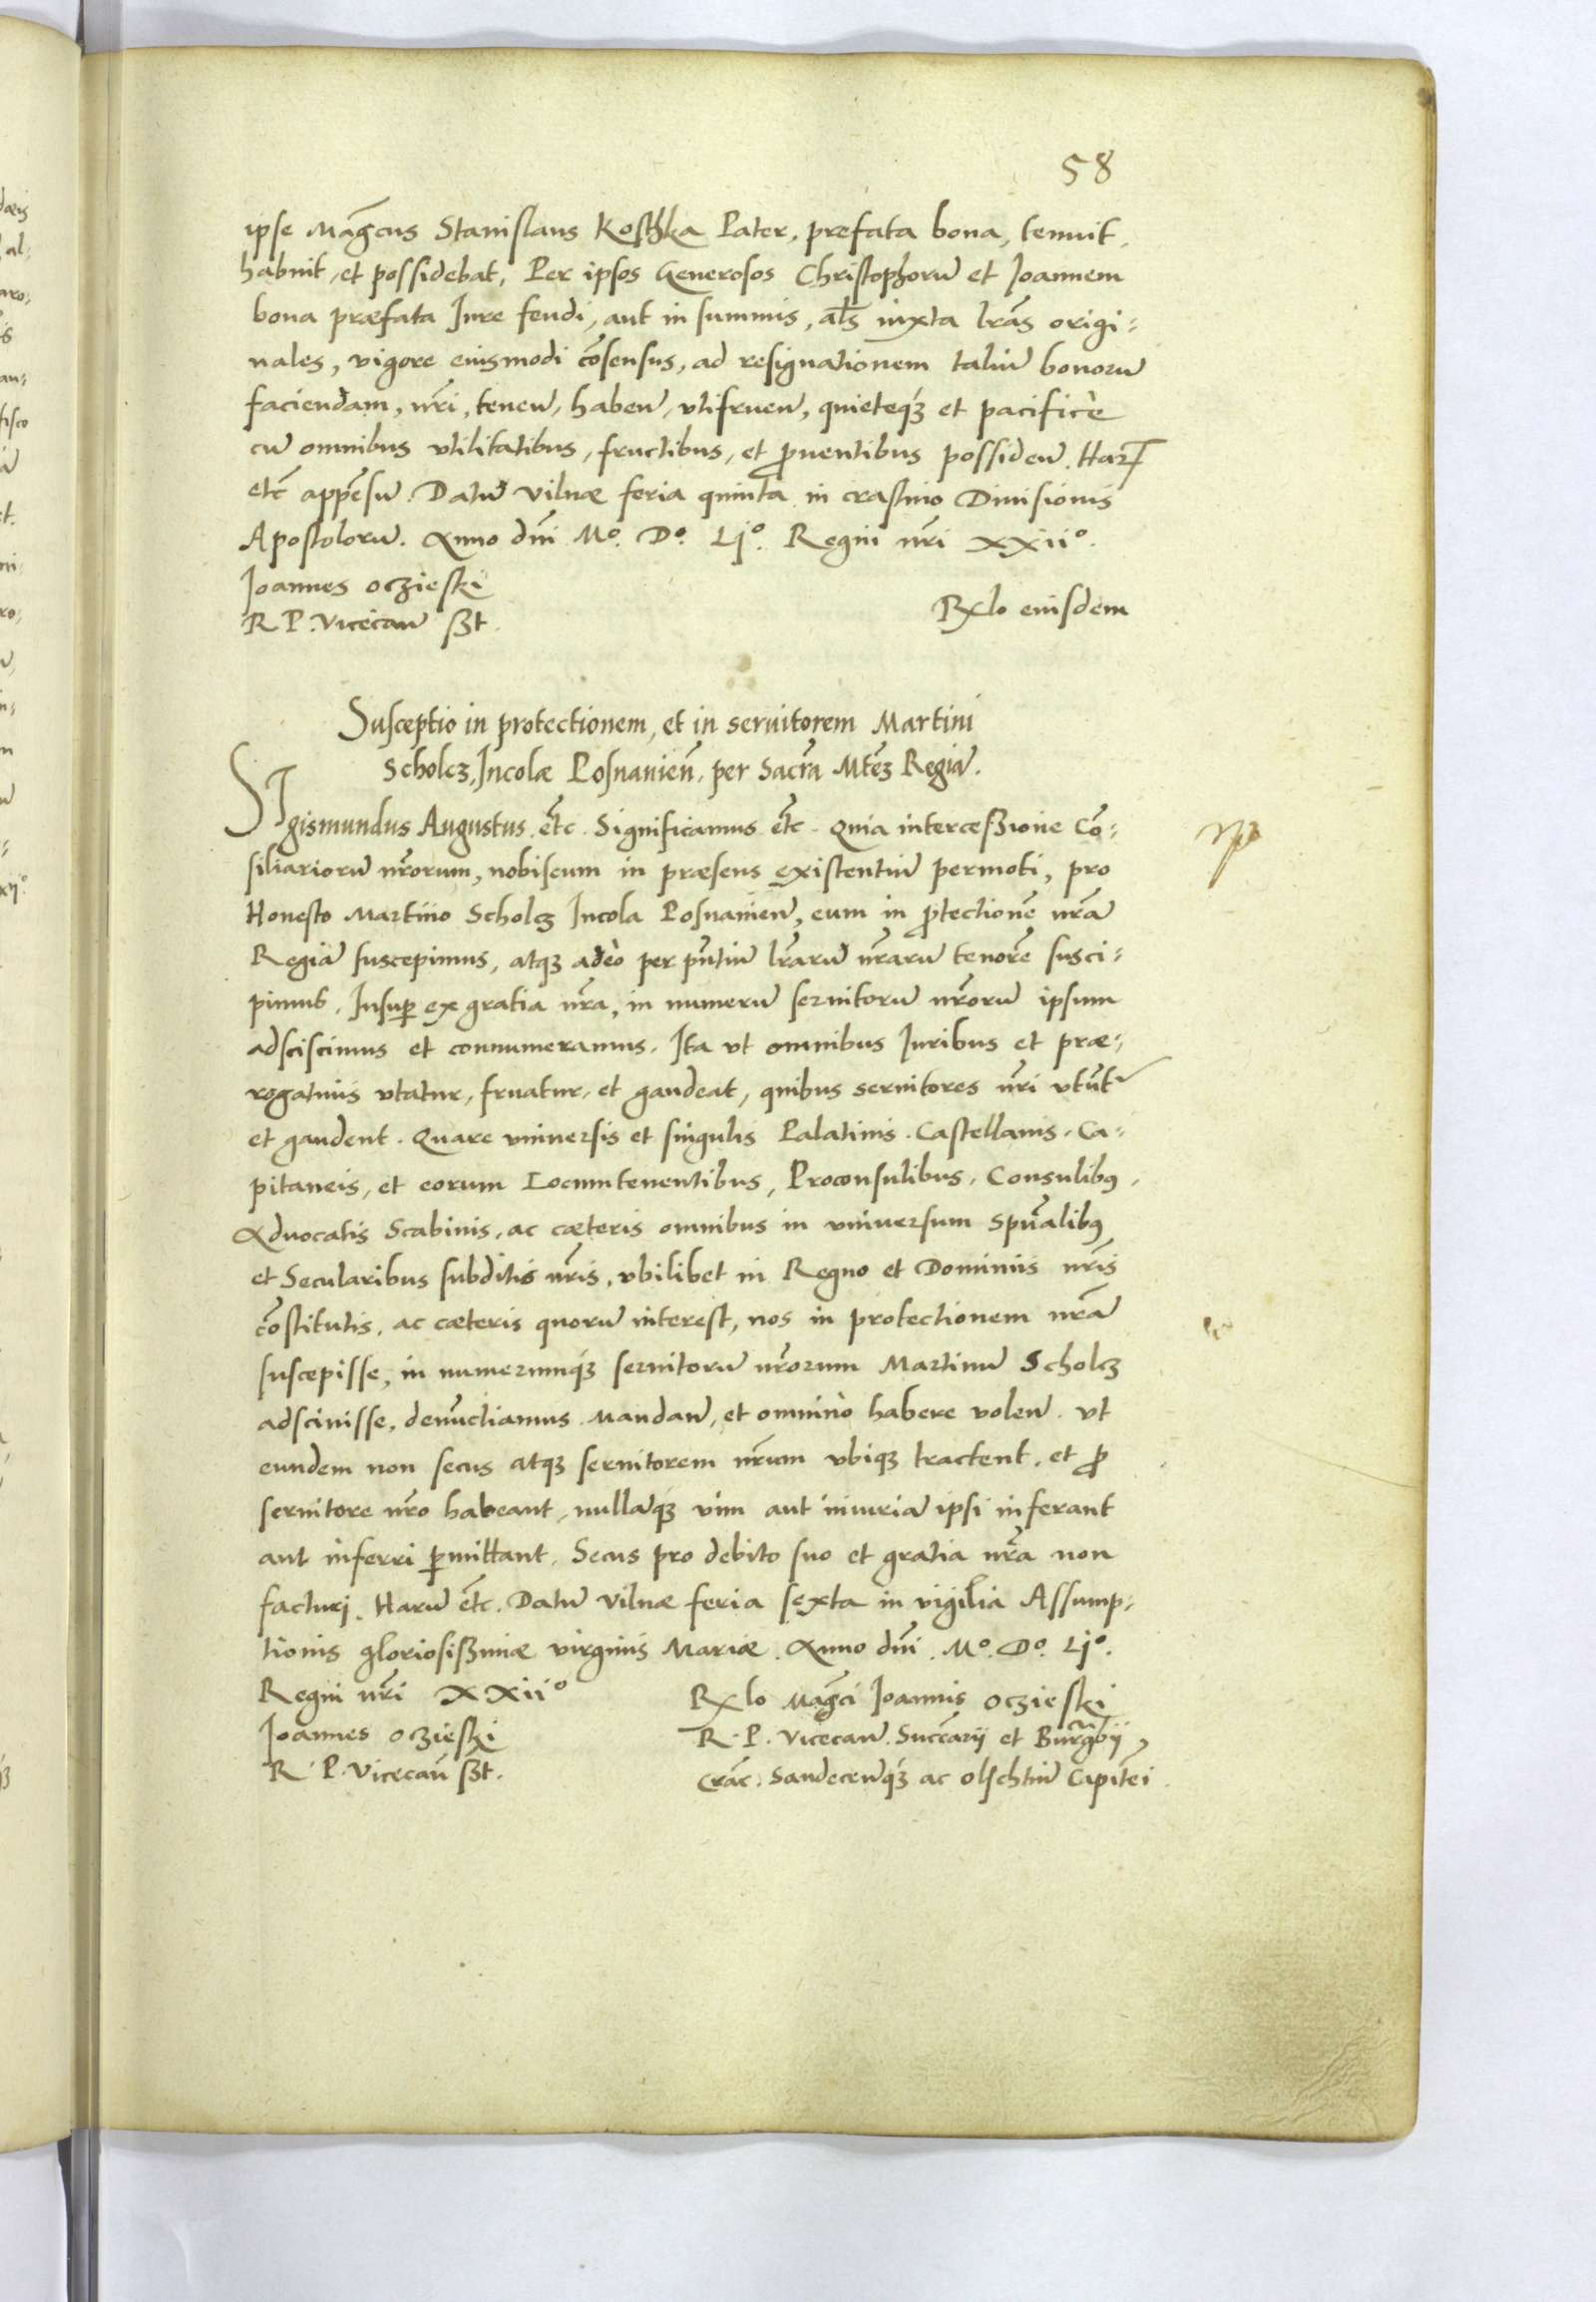 58
ipse Magcus Stanislaus Kosthka Pater, prefata bona, tenuit,
habuit, et possidebat, Per ipsos Generosos Christophorū et Joannem
bona præfata Jure feudi, aut in summis, als iuxta lrās origi=
nales, vigore eiusmodi cōsensus, ad resignationem taliū bonorū
faciendam, nr̄i, tenen̄, haben̄, vtifruen̄, quieteq́ꝫ et pacificè
cū omnibus vtilitatibus, fructibus, et ꝓuentibus possiden̄. Harꝝ
etc̄ appēsū. Datū vilnæ feria quinta in crastino Diuisionis
Apostolorū. Anno dn̄i Mº. Dº. Ljº. Regni nr̄i xxiiº.
Joannes oczieski
R P. Vicecan̄ sst.
Rxlo eiusdem
Susceptio in protectionem, et in seruitorem Martini
Scholcz, Incolæ Posnanien̄, per Sacrā Mtēꝫ Regiā.
SIgismundus Augustus. etc̄. Significamus etc̄. Quia intercessione Cō=
siliariorū nr̄orum, nobiscum in præsens existentiū permoti, pro
Honesto Martino Scholcz Incola Posnanien̄, eum in ꝓtectionē nr̄ā
Regiā suscepimus, atqꝫ adeò per pn̄tiū lr̄arū nr̄arū tenorē susci=
pimus. Insuꝑ ex gratia nr̄a, in numerū seruitorū nr̄orū ipsum
adsciscimus et connumeramus. Ita vt omnibus Juribus et præ=
rogatiuis vtatur, fruatur, et gaudeat, quibus seruitores nr̄i vtūt͛
et gaudent. Quare vniuersis et singulis Palatinis. Castellanis. Ca=
pitaneis, et eorum Locumtenentibus, Proconsulibus. Consulibꝰ.
Aduocatis Scabinis, ac cæteris omnibus in vniuersum Spūalibꝰ
et Secularibus subditis nr̄is, vbilibet in Regno et Dominiis nr̄is
cōstitutis, ac cæteris quorū interest, nos in protectionem nr̄ā
suscepisse, in numerumq́ꝫ seruitorū nr̄orum Martinū Scholcz
adsciuisse, denūctiamus. Mandan̄, et omninò habere volen̄. vt
eundem non secus atqꝫ seruitorem nr̄um vbiqꝫ tractent, et ꝓ
seruitore nr̄o habeant, nullāq́ꝫ vim aut iniuriā ipsi inferant
aut inferri ꝑmittant. Secus pro debito suo et gratia nr̄a non
facturj. Harū etc̄. Datū vilnæ feria sexta in vigilia Assump=
tionis gloriosissimæ virginis Mariæ. Anno dn̄i. Mº. Dº. Ljº.
Regni nr̄i xxiiº
Joannes oczieski
R. P. Vicecan̄ sst.
Rxlo Magc̄i Joannis oczieski
R. P. Vicecan̄. Succr̄arij et Burgrabij
Crāc. Sandecen̄q́ꝫ ac olschtin̄ Capitēi.